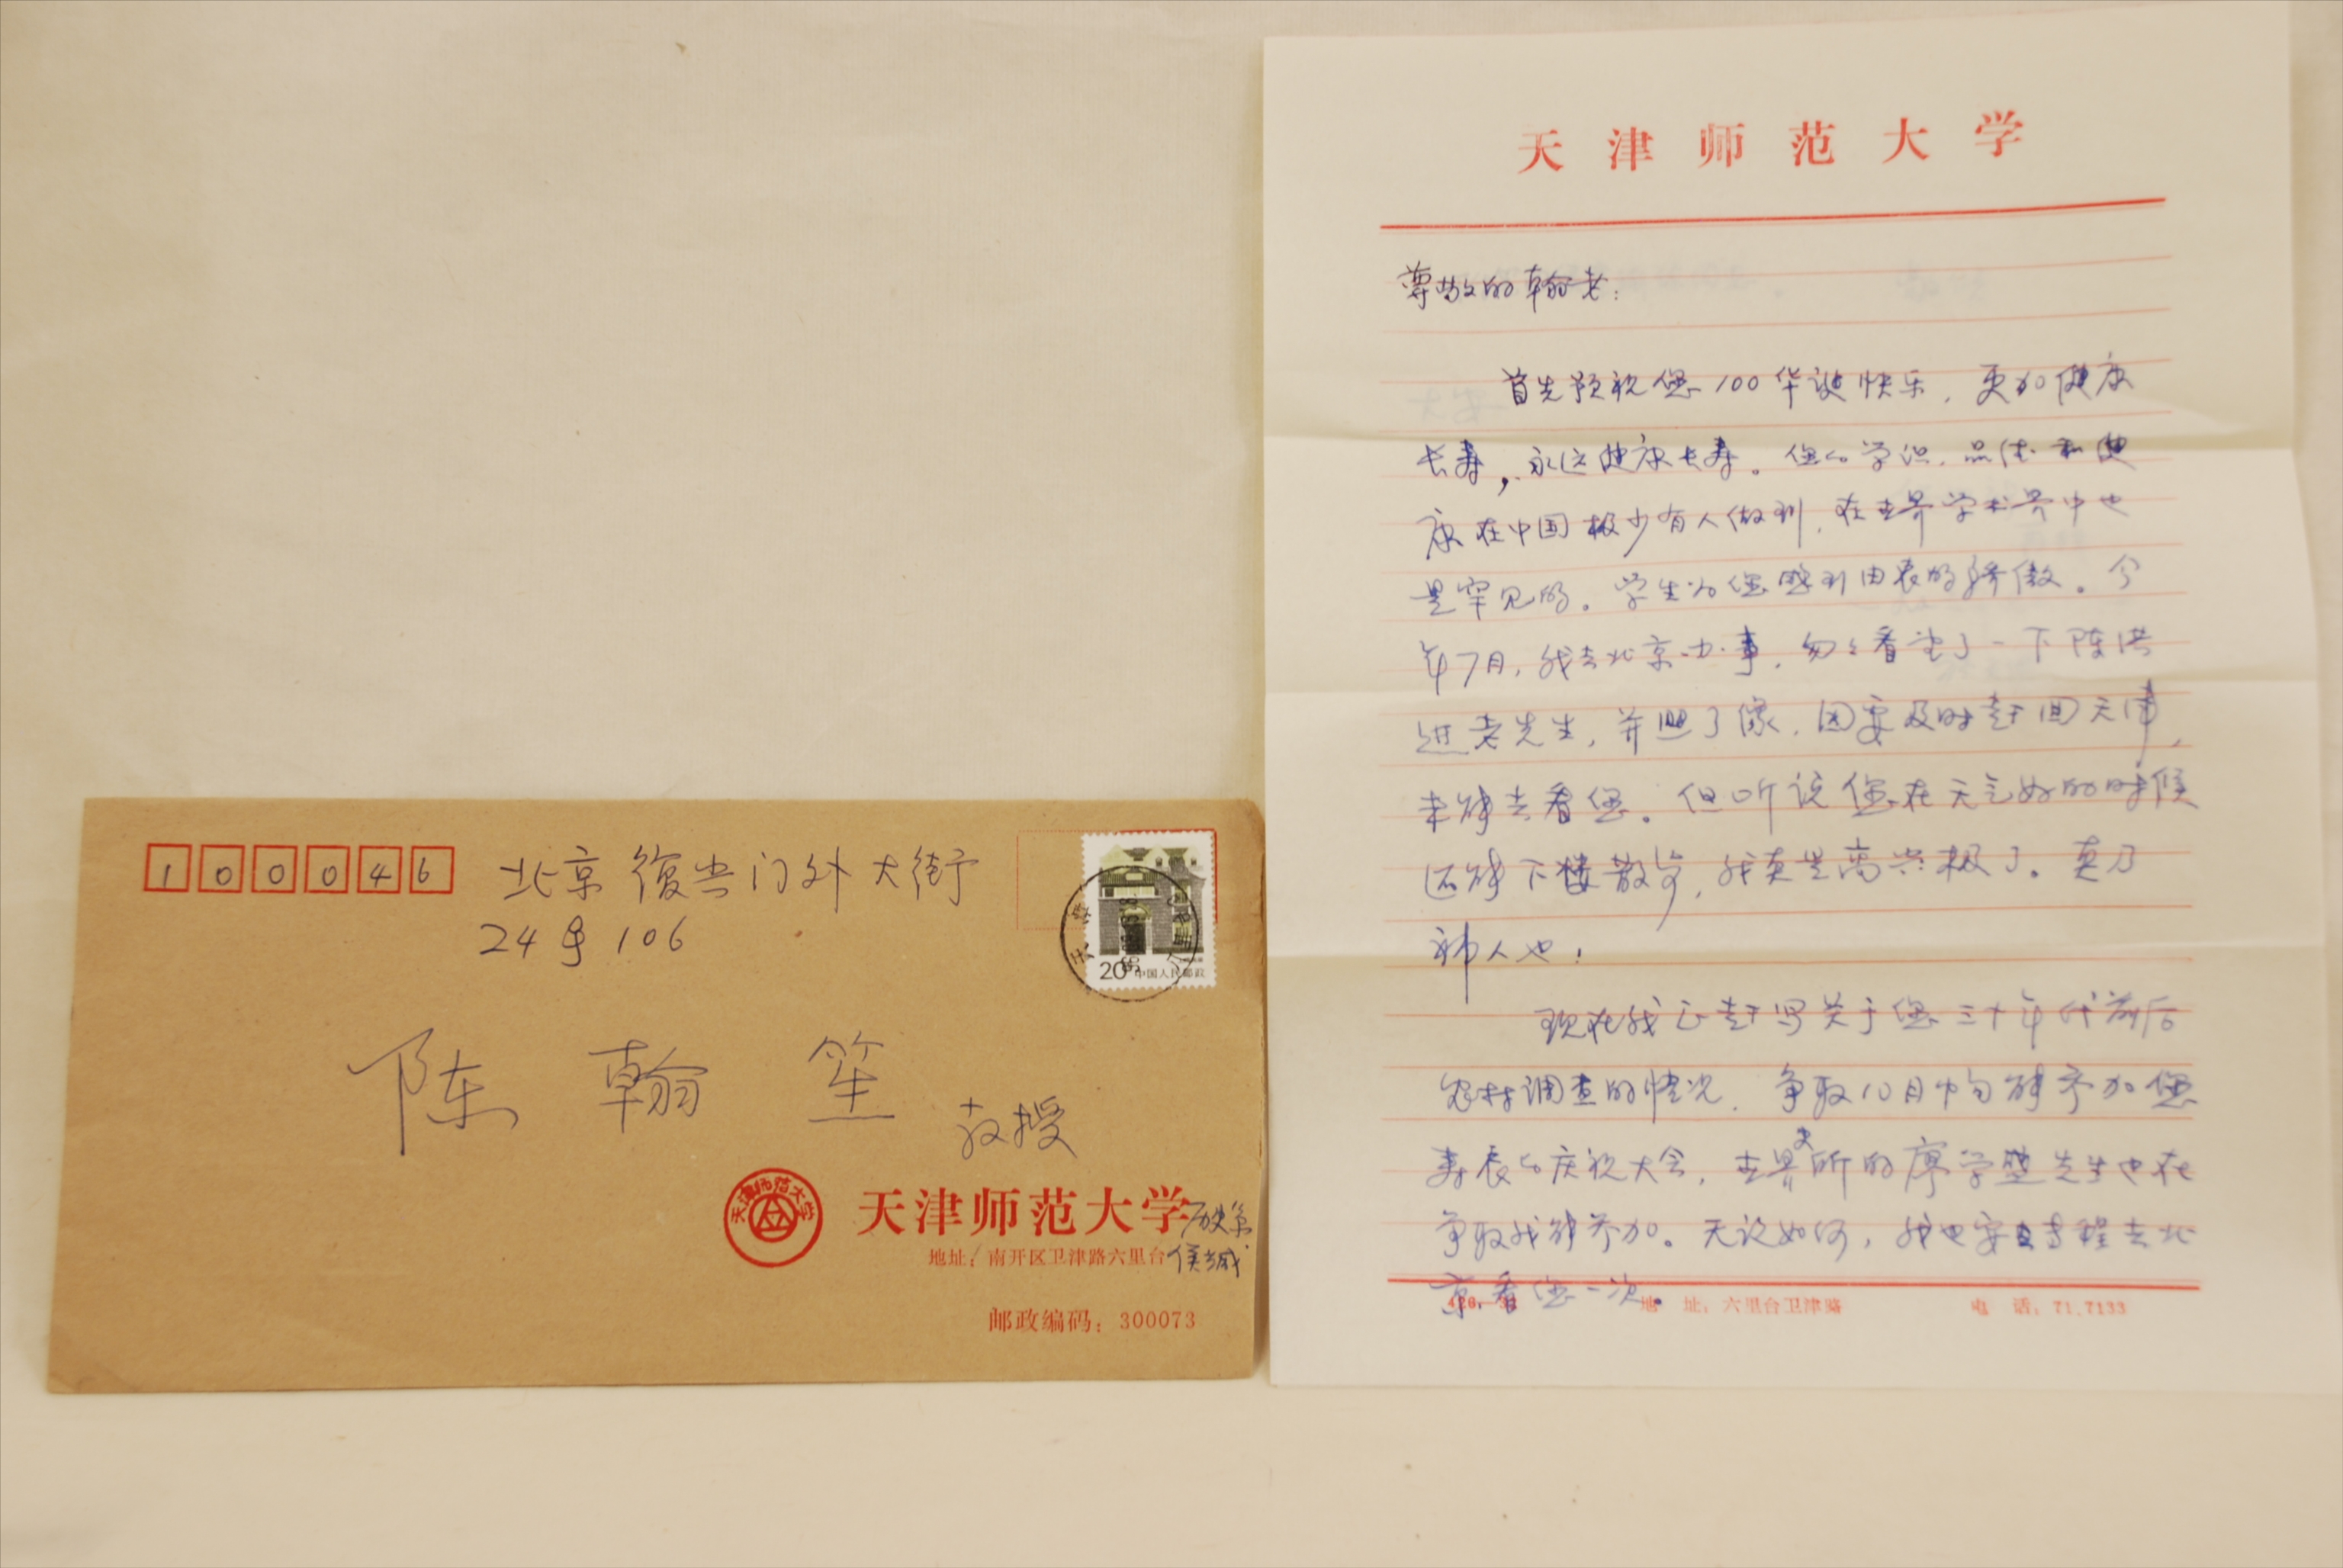 100046
北京復兴门外大街
24号106
20 中国人民邮政
天津
陈翰笙
教授
天津师范大学
天津师范大学历史系
地址：南开区卫津路六里台侯
邮政编码：300073
天津师范大学
尊敬的翰老：
首先预祝您100华诞快乐，更加健康
长寿，永远健康长寿。您的学识、品德和健
康在中国极少有人做到，在世界学术界中也
是罕见的。学生为您感到由衷的骄傲。今
年7月，我去北京办事，匆匆看望了一下陈洪
进老先生，并照了像，因要及时赶回天津，
未能去看您。但听说您在天气好的时候
还能下楼散步，我真是高兴极了。真乃
神人也！
现在我正赶写关于您三十年代前后
农村调查的情况，争取10月中旬能参加您
寿辰的庆祝大会，世界史所的廖学盛先生也在
争取我能参加。无论如何，我也要专程去北
京看您一次。
地址：六里台卫津路
电话：71.7133